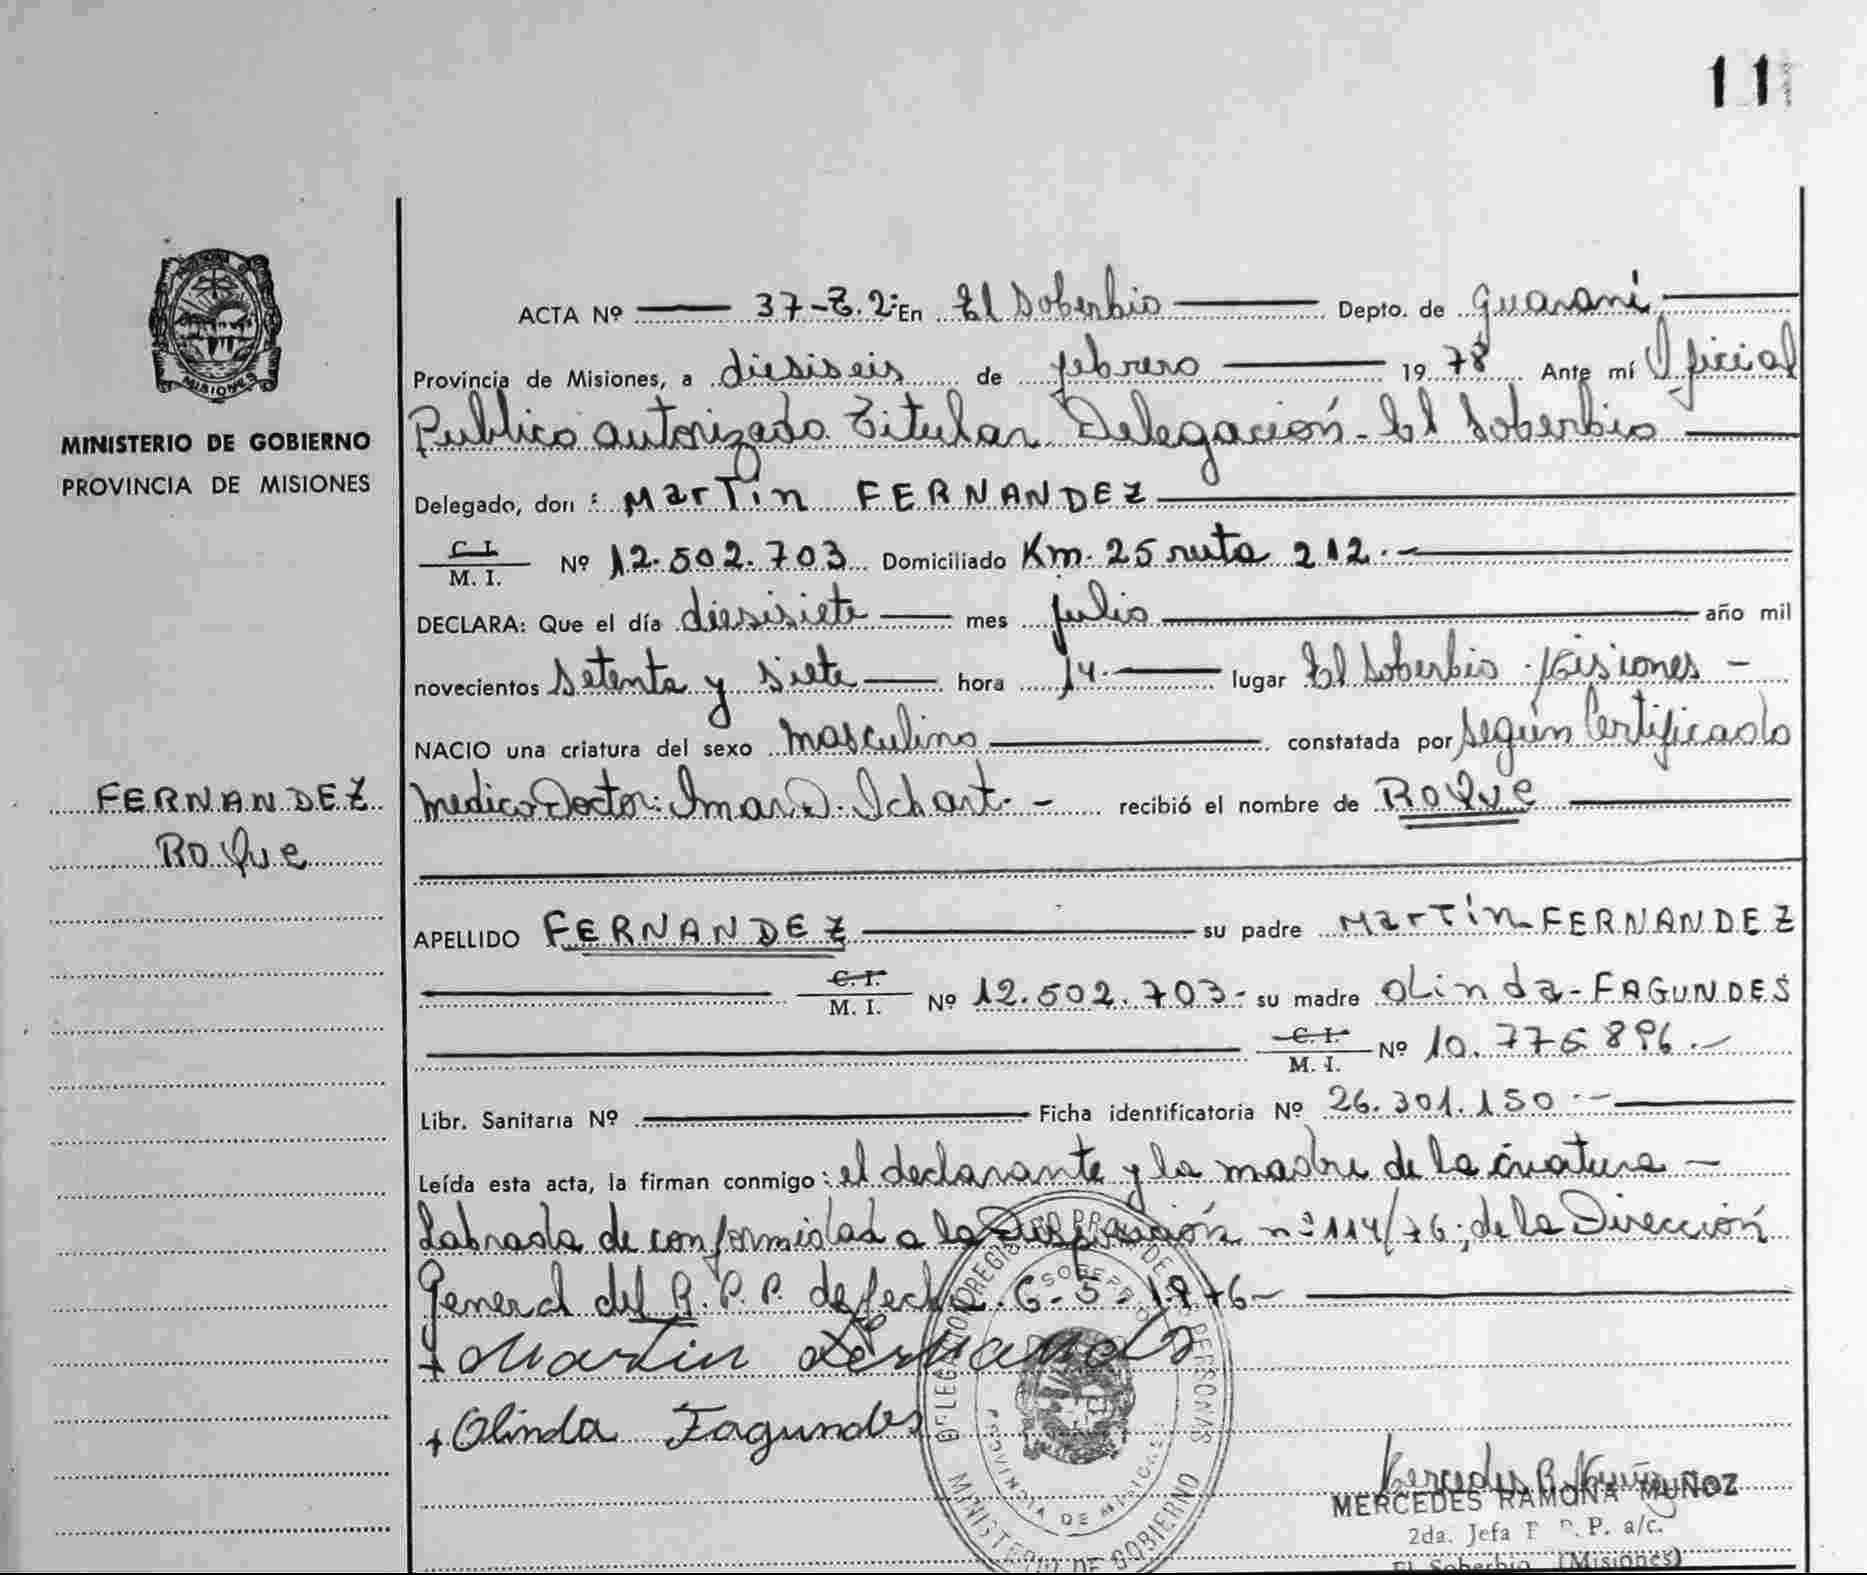 11
ACTA Nº 37-T.2: En El Soberbio Depto. de Guaraní
Provincia de Misiones, a diesiseis de febrero 1978 Ante mí Oficial
Publico autorizado Titular Delegación - El Soberbio
Delegado, don : Martín FERNANDEZ
C. I. M. I. Nº 12.502.703 Domiciliado Km. 25 ruta 212.-
DECLARA: Que el día diesisiete mes julio año mil
novecientos setenta y siete hora 14. lugar El Soberbio - Misiones -
NACIO una criatura del sexo masculino constatada por según Certificado
medico Doctor: Omar D. Ichart. - recibió el nombre de Roque
APELLIDO FERNANDEZ su padre Martín FERNANDEZ
C. I. M. I. Nº 12.502.703- su madre Olinda - FAGUNDES
C. I. M. I. Nº 10.776.896.-
Libr. Sanitaria Nº Ficha identificatoria Nº 26.301.150.-
Leída esta acta, la firman conmigo : el declarante y la madre de la criatura -
Labrada de conformidad a la Disposición nº 114/76; de la Dirección
General del R.P.P. de fecha 6-5-1976-
+ Martin
+ Olinda Fagundes
MERCEDES RAMONA MUÑOZ
2da. Jefa P. P. a/c.
El Soberbio (Misiones)
MISIONES
MINISTERIO DE GOBIERNO
PROVINCIA DE MISIONES
FERNANDEZ
Roque
DELEGACION REGISTRO PROV. DE PERSONAS
SOBERBIO
PROVINCIA DE MISIONES
MINISTERIO DE GOBIERNO